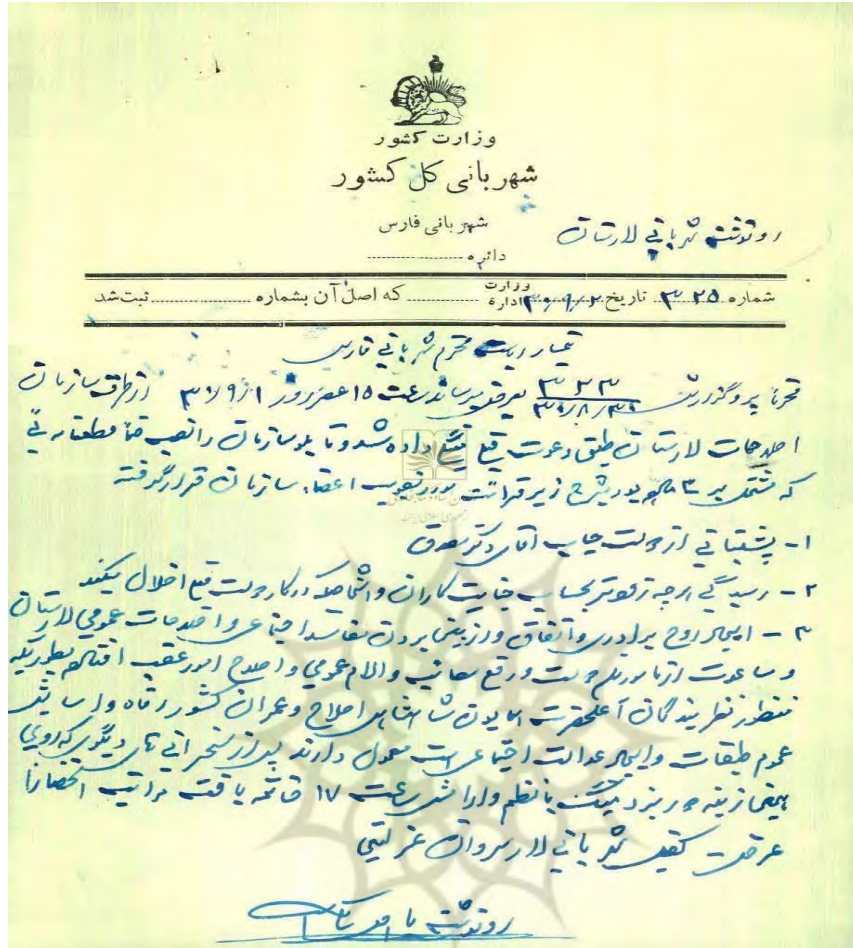 وزارت کشور
شهربانی کل کشور
شهربانی فارس
رونوشت شهربانی لارستان
دائره
شماره ۳۲۵ تاریخ ۳۰/۹/۲ وزارت اداره که اصل آن بشماره ثبت شد
تیمسار ریاست محترم شهربانی فارس
پیرو گزارش ۳۳۳ ۳۰/۸/۳۰ بعرض میرساند ساعت ۱۵ عصر روز ۳۰/۹/۱ از طرف سازمان
اصلاحات لارستان طبق دعوت قبلی میتینگ داده شد و تابلو سازمان را نصب ضمنا قطعنامه ئی
که مشتمل بر ۳ ماده بود بشرح زیر قرائت مورد تصویب اعضاء سازمان قرار گرفته
۱- پشتیبانی از دولت جناب آقای دکتر مصدق
۲- رسیدگی هرچه زودتر بحساب جنایت کاران و اشخاصیکه در کار دولت اخلال میکنند
۳- ایجاد روح برادری و اتفاق و از بین بردن مفاسد اجتماعی و اصلاحات عمومی لارستان
و مساعدت از مامورین دولت و رفع مصائب و آلام عمومی و اصلاح امور عقب افتاده بطوریکه
منظور نظر بندگان اعلیحضرت همایون شاهنشاهی اصلاح و عمران کشور رفاه و آسایش
عموم طبقات و ایجاد عدالت اجتماعی است معمول دارند پس از سخنرانی های دیگری که روی
همین زمینه میتینگ با نظم و آرامش ساعت ۱۷ خاتمه یافته مراتب استحضارا
عرض شد کفیل شهربانی لار سروان
رونوشت با اصل